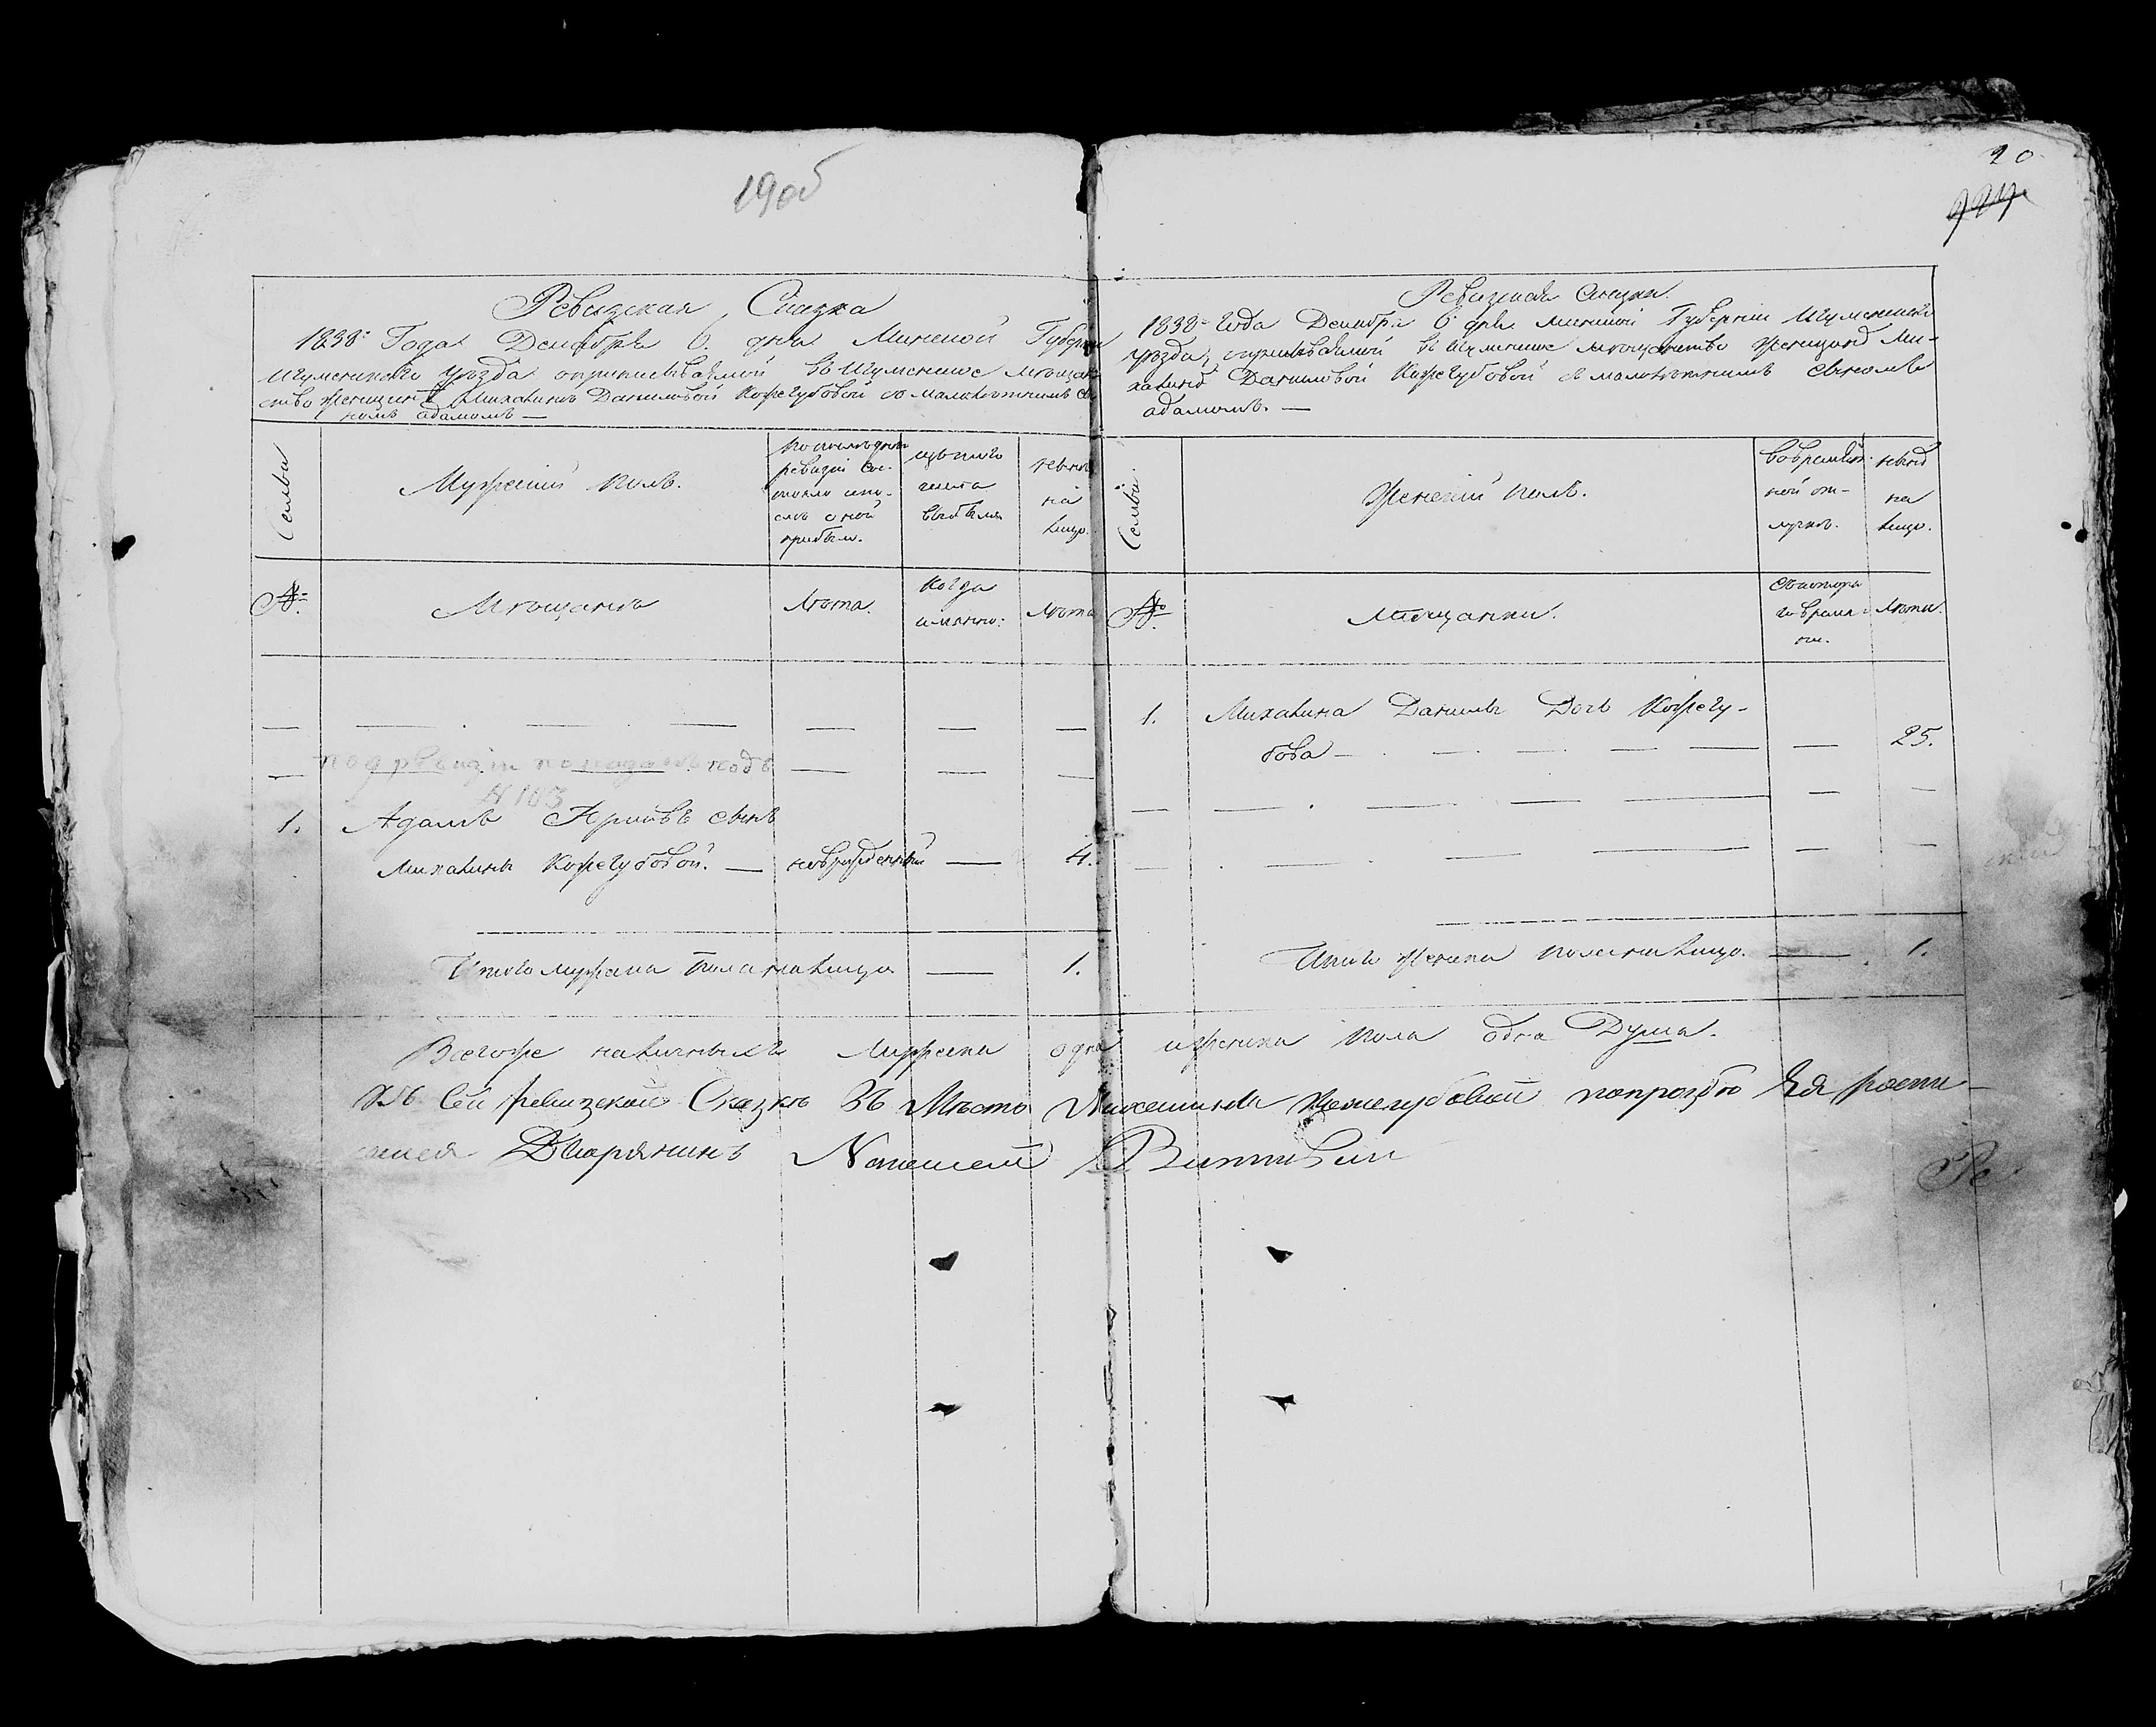 19об
Ревизская Сказка
1838: Года Декабря 6. дня Минской Губернии
Игуменскаго уезда о приписываемой въ Игуменское мещан
ство женщине Михалине Даниловой Кожегубовой со малолетнимъ сы
номъ адамомъ —
Семьи
Мужеский полъ.
По последней ревизии состояло и после оной прибыло.
изъ того числа выбыло
ныне на лицо.
№
Мещане
Лета.
Когда именно:
Лета
под ревизии показанъ подъ
№ 103
1. Адамъ сынъ
Михалины Кожегубовой. — новорожденный — 4.
Итого мужеска пола на лицо — 1.
20
Ревизская сказка.
1838: Года Декабря 6 дня Минской Губернии Игуменскаго
уезда, о приписываемой въ Игуменское мещанство женщине Ми-
халине Даниловой Кожегубовой съ малолетнимъ сыномъ
адамомъ. —
Семьи.
Женский полъ.
Во временной отлучке.
ныне на лицо.
№
Мещанки.
Съ котораго времени.
Лета.
1. Михалина Данилы Дочь Кожегу-
бова — — — — — 25.
Итого женска пола на лицо. — 1.
Всегоже наличныхъ мужеска одна и женска пола одна Душа.
Къ сей ревизской Сказке въ Место Михалины Кожегубовой по прозбе Ея роспи-
сался Дворянинъ